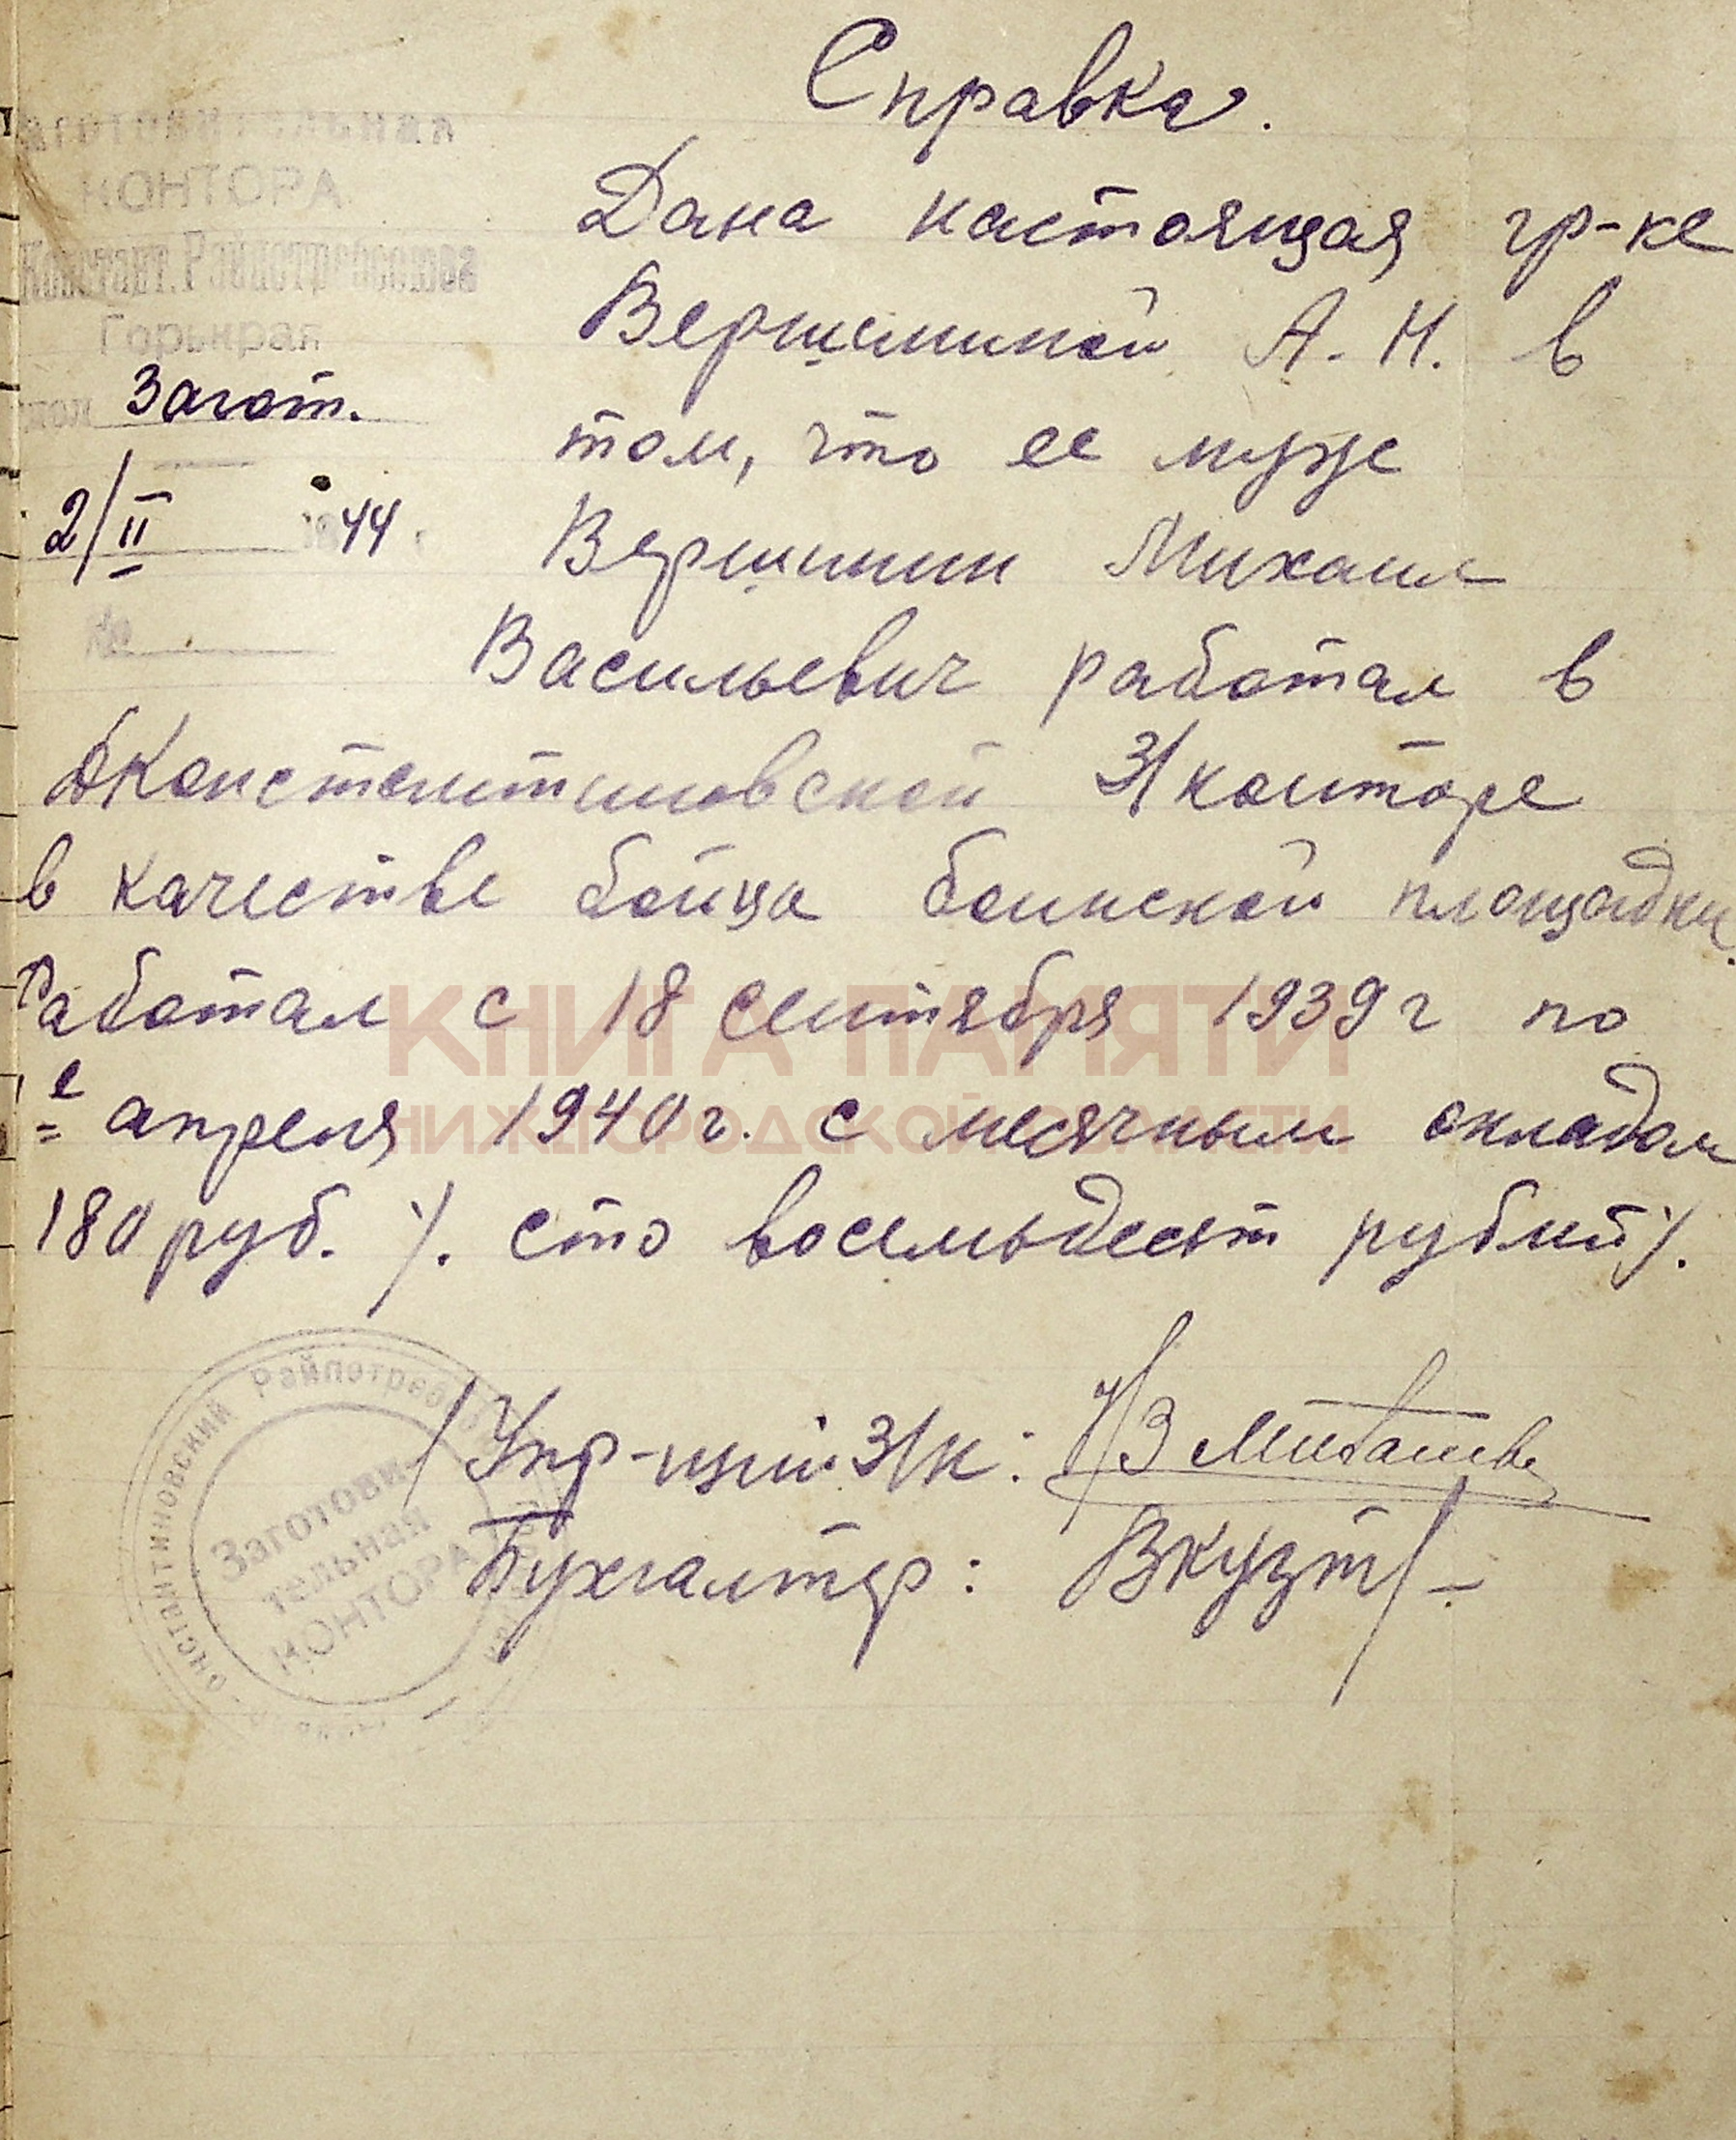 Справка.
Заготовительная
КОНТОРА
Констант. Райпотребсоюза
Горькрая
Загот.
2/II 1944 г
№
Дана настоящая гр-ке
Вершининой А. Н. в
том, что ее муж
Вершинин Михаил
Васильевич работал в
Д Константиновской З/конторе
в качестве бойца боинской площадки.
Работал с 18 сентября 1939 г по
1е апреля 1940 г. с месячным окладом
180 руб. /. сто восемьдесят рублей /.
КНИГА ПАМЯТИ
НИЖЕГОРОДСКОЙ ОБЛАСТИ
Упр-щий З/К:
Бухгалтер: ВКузт
Константиновский Райпотребсоюз
Заготови-
тельная
КОНТОРА